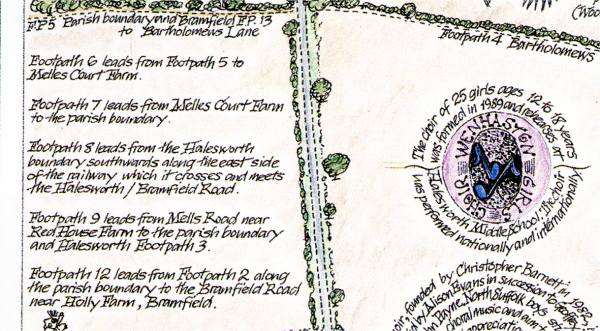 FP5 Parish boundary and Bramfield FP. 13
to Bartholomews Lane
Footpath 6 leads from Footpath 5 to
Melles Court Farm.
Footpath 7 leads from Melles Court Farm
to the parish boundary.
Footpath 8 leads from the Halesworth
boundary southwards along the east side
of the railway which it crosses and meets
the Halesworth / Bramfield Road.
Footpath 9 leads from Mells Road near
Red House Farm to the parish boundary
and Halesworth Footpath 3.
Footpath 12 leads from Footpath 2 along
the parish boundary to the Bramfield Road
near Holly Farm, Bramfield.
(Woo
Footpath 4 Bartholomews
The choir of 25 girls ages 12 to 18 years
was formed in 1989 and
WENHASTON GIRLS CHOIR
Halesworth Middle School. The choir
performed nationally and internationally
founded by Christopher Barnett in 1982
by Alison Evans in succession to
Payne. North Suffolk boys
choral music and